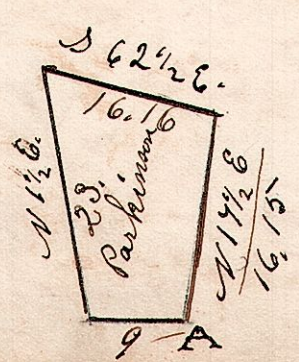 S 62½ E.
16.16
N 1½ E.
23.
Parkinson
N 17½ E
16.15
9 A